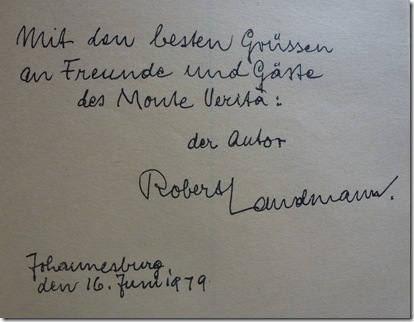 Mit den besten Grüssen
an Freunde und Gäste
des Monte Verità:
der Autor
Robert Landmann.
Johannesburg,
den 16. Juni 1979.